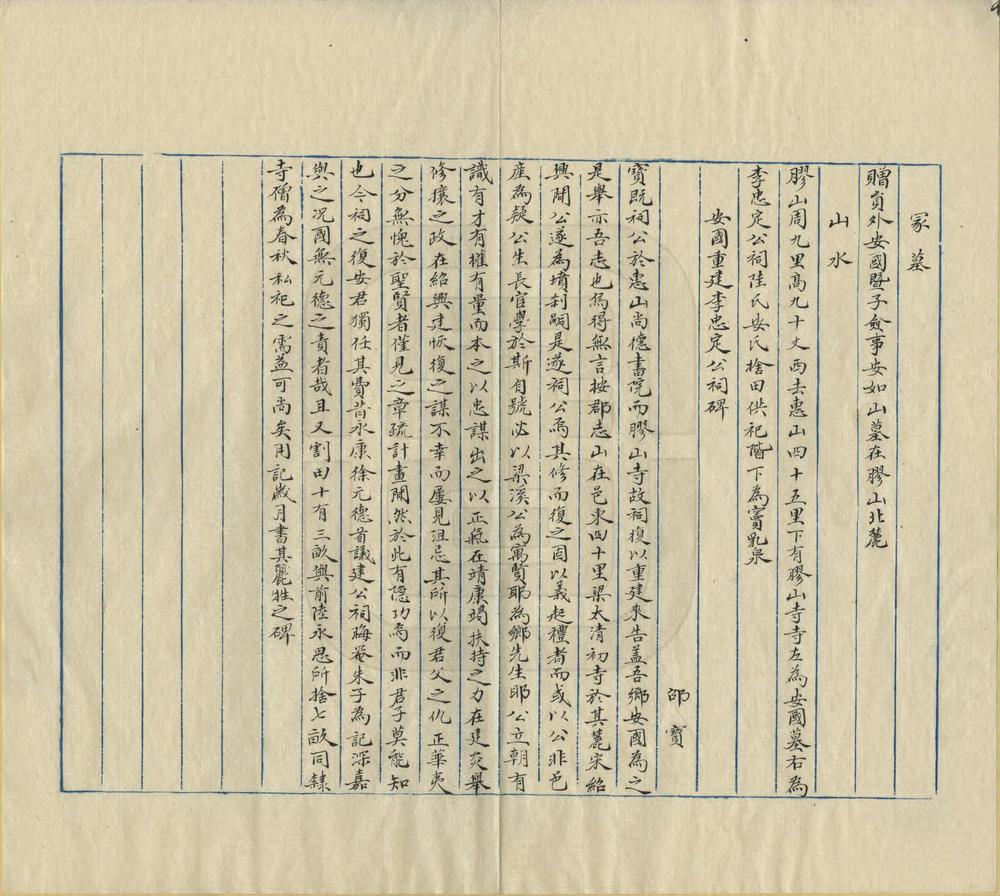 冢墓
贈員外安國暨子僉事安如山墓在膠山北麓
山水
膠山周九里高九十丈西去惠山四十五里下有膠山寺寺左為安國墓右為
李忠定公祠陸氏安氏捨田供祀階下為竇乳泉
安國重建李忠定公祠碑
邵寶
寶既祠公於惠山尚德書院而膠山寺故祠復以重建來告蓋吾鄉安國為之
是舉亦吾志也烏得無言按郡志山在邑東四十里梁太清初寺於其麓宋紹
興間公遂為墳刹嗣是遂祠公焉其修而復之固以義起禮者而或以公非邑
產為疑公生長宦學於斯自號必以梁溪公為寓賢耶為鄉先生耶公立朝有
識有才有權有量而本之以忠謀出之以正氣在靖康竭扶持之力在建炎舉
修攘之政在紹興建恢復之謀不幸而屢見沮忌其所以復君父之仇正華夷
之分無愧於聖賢者僅見之章疏計畫間然於此有隱功焉而非君子莫能知
也今祠之復安君獨任其費昔永康徐元德首議建公祠晦菴朱子為記深嘉
與之况國無元德之責者哉且又割田十有三畝與前陸永思所捨七畝同隸
寺僧為春秋私祀之需益可尚矣用記歲月書其麗牲之碑